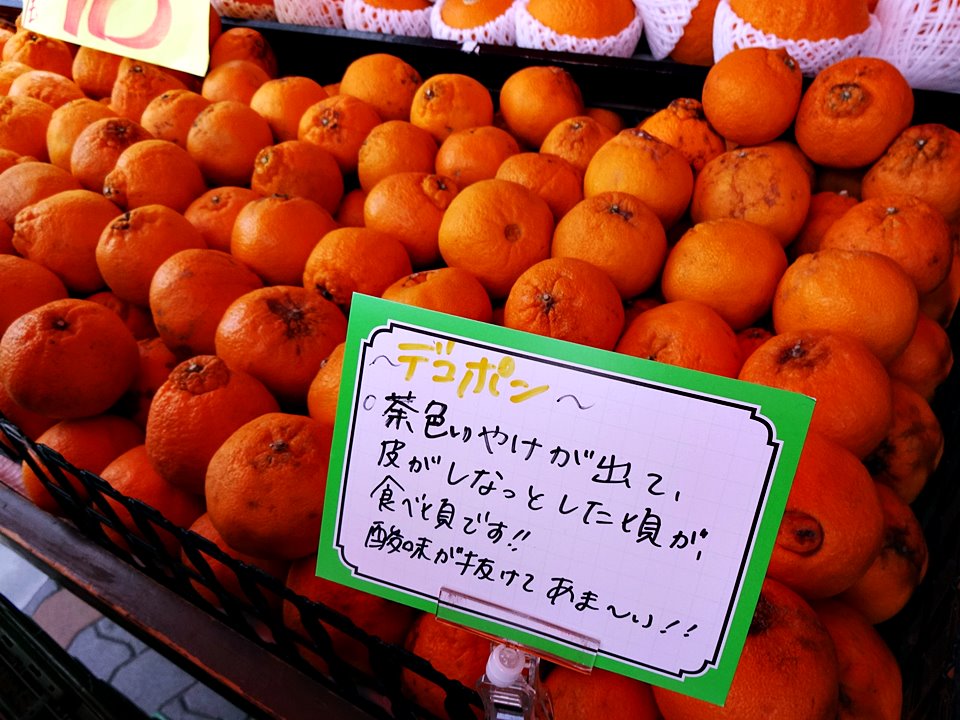 ~デコポン~
○茶色いやけが出て、
皮がしなっとしたと頃が、
食べと頃です!!
酸味が抜けて あま〜い!!